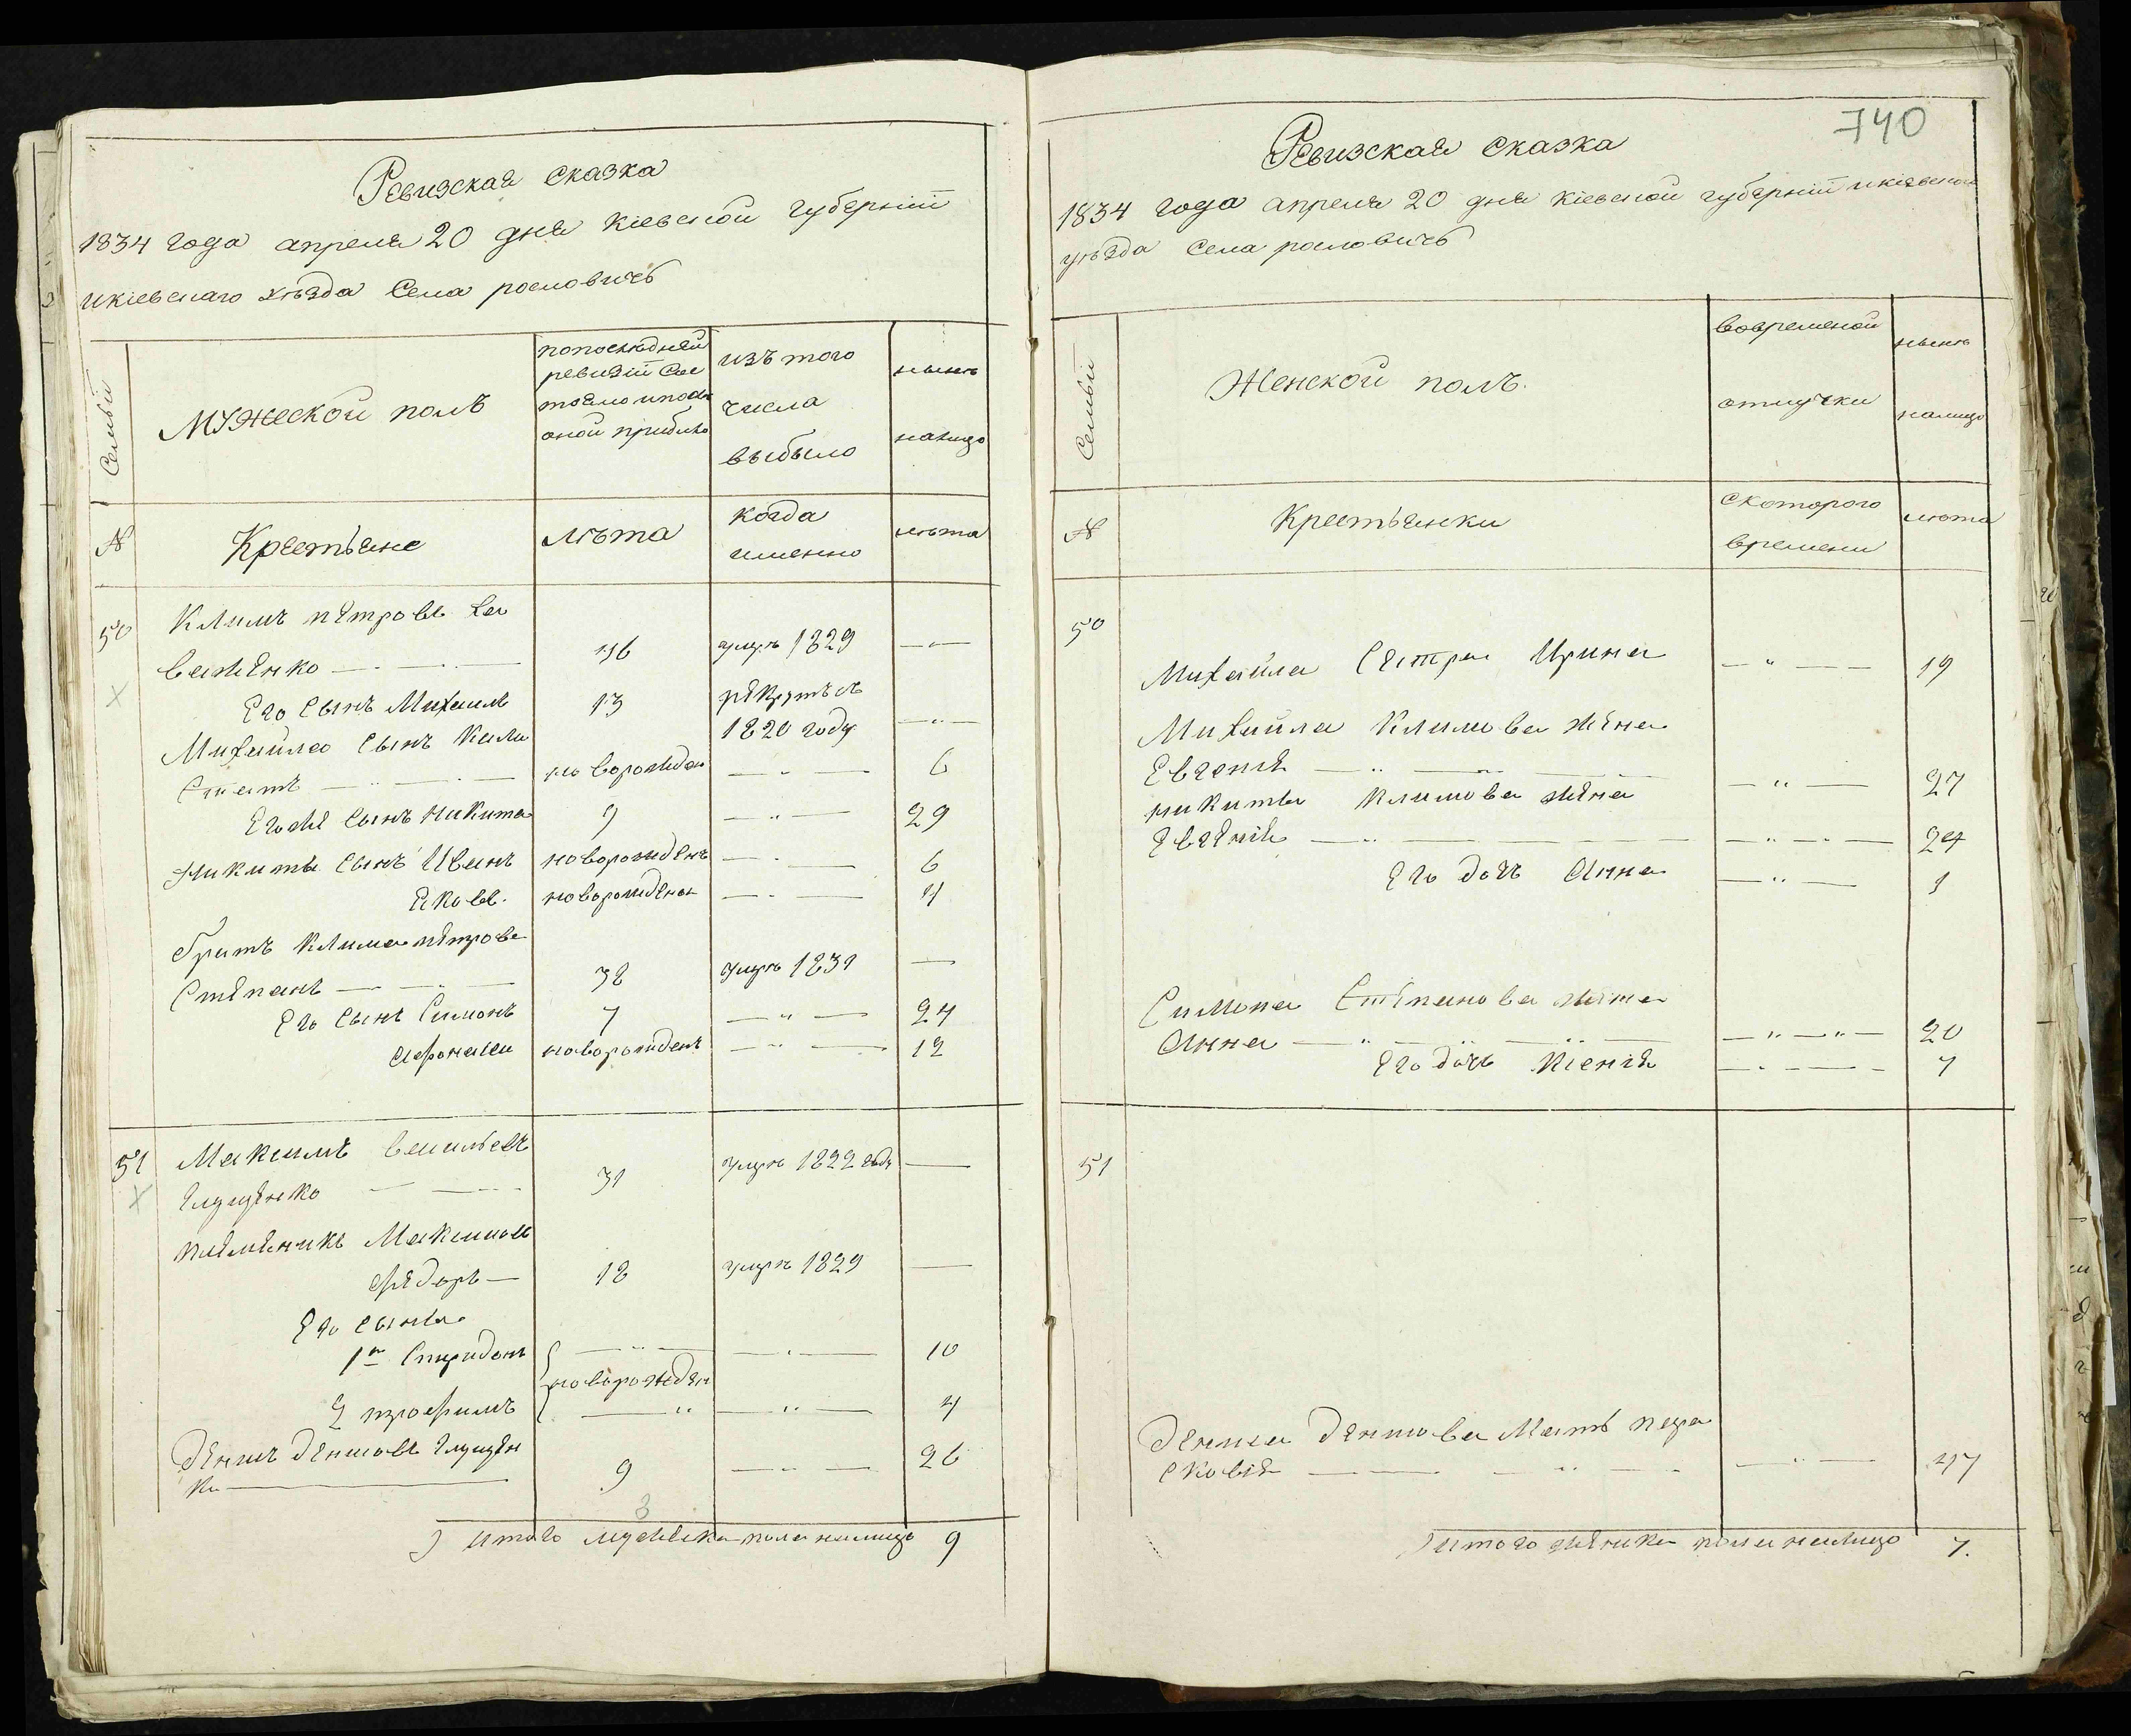 Ревизская сказка
1834 года апреля 20 дня кіевской губерніи
икіевскаго уѣзда Села рословичъ
Семьи
Мужеской полъ
попоследней
ревизіи Сос
тояло ипосл
оной прибыло
изъ того
числа
выбыло
нынѣ
налицо
№
Крестьяне
лѣта
когда
именно
лѣта
50
Климъ петровъ
46
умръ 1829
Его Сынъ Михаилъ
13
рекрутъ въ
1820 году
Михайла Сынъ
новорожден
6
Его же Сынъ Никита
9
29
Никиты Сынъ Иванъ
новорожденъ
6
Яковъ
новорожден
4
братъ Клима петрова
Степанъ
38
умръ 1831
Его Сынъ Симонъ
7
24
Афонаси
новорожденъ
12
51
Максимъ васильевъ
31
умръ 1822 году
племяникъ Максимов
Федоръ
18
умръ 1829
Его сыны
1й Спиридонъ
10
новорожден
2 трофимъ
4
Денисъ Денисовъ
9
26
3
итого мужеска пола налицо 9
740
Ревизская сказка
1834 года апреля 20 дня кіевской губерніи икіевскаго
уѣзда Села рословичъ
Семьи
Женской полъ.
вовременой
отлучки
нынѣ
налицо
№
Крестьянки
скоторого
времени
лѣта
50
Михайла Сестра Ирина
19
Михайла Климова жена
Евгенія
27
никиты Климова жена
Евгенія
24
Его дочь Анна
1
Симона Степанова жена
Анна
20
Его дочь
7
51
Дениса Денисова Мать пера
сковія
47
итого женска пола налицо 7.